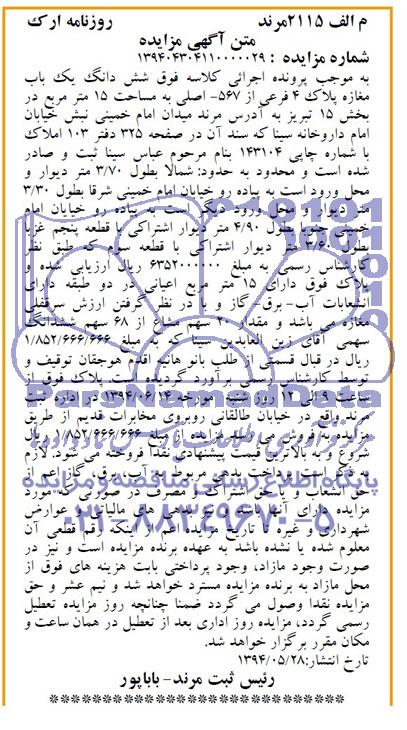 م الف ۲۱۱۵مرند روزنامه ارک
متن آگهی مزایده
شماره مزایده : ۱۳۹۴۰۴۳۰۴۱۱۰۰۰۰۰۲۹
به موجب پرونده اجرائی کلاسه فوق شش دانگ یک باب
مغازه پلاک ۴ فرعی از ۵۶۷- اصلی به مساحت ۱۵ متر مربع در
بخش ۱۵ تبریز به آدرس مرند میدان امام خمینی نبش خیابان
امام داروخانه سینا که سند آن در صفحه ۳۲۵ دفتر ۱۰۳ املاک
با شماره چاپی ۱۴۳۱۰۴ بنام مرحوم عباس سینا ثبت و صادر
شده است و محدود به حدود: شمالا بطول ۳/۷۰ متر دیوار و
محل ورود است به پیاده رو خیابان امام خمینی شرقا بطول ۳/۳۰
متر دیوار و محل ورود دیگر است به پیاده رو خیابان امام
خمینی جنوبا بطول ۴/۹۰ متر دیوار اشتراکی با قطعه پنجم غربا
بطول ۳/۶۰ متر دیوار اشتراکی با قطعه سوم که طبق نظر
کارشناس رسمی به مبلغ ریال ارزیابی شده و
پلاک فوق دارای ۱۵ متر مربع اعیانی در دو طبقه دارای
انشعابات آب- برق- گاز و با در نظر گرفتن ارزش سرقفلی
مغازه می باشد و مقدار ۲۰ سهم مشاع از ۶۸ سهم ششدانگ
سهمی آقای زین العابدین سینا که به مبلغ ۱/۸۵۲/۶۶۶/۶۶۶
ریال در قبال قسمتی از طلب بانو هانیه اقدم هوجقان توقیف و
توسط کارشناس رسمی برآورد گردیده است. پلاک فوق از
ساعت ۹ الی ۱۲ روز شنبه مورخه ۱۳۹۴/۰۶/۱۴ در اداره ثبت
مرند واقع در خیابان طالقانی روبروی مخابرات قدیم از طریق
مزایده بفروش می رسد مزایده از مبلغ ۱/۸۵۲/۶۶۶/۶۶۶ ریال
شروع و به بالاترین قیمت پیشنهادی نقدا فروخته می شود. لازم
به ذکر است پرداخت بدهی مربوط به آب، برق، گاز اعم از
حق انشعاب و یا حق اشتراک و مصرف در صورتی که مورد
مزایده دارای آنها باشد و نیز بدهی های مالیاتی و عوارض
شهرداری و غیره تا تاریخ مزایده اعم از اینکه رقم قطعی آن
معلوم شده یا نشده باشد به عهده برنده مزایده است و نیز در
صورت وجود مازاد، وجوه پرداختی بابت هزینه های فوق از
محل مازاد به برنده مزایده مسترد خواهد شد و نیم عشر و حق
مزایده نقدا وصول می گردد ضمنا چنانچه روز مزایده تعطیل
رسمی گردد، مزایده روز اداری بعد از تعطیل در همان ساعت و
مکان مقرر برگزار خواهد شد.
تاریخ انتشار:۱۳۹۴/۰۵/۲۸
رئیس ثبت مرند- باباپور
پایگاه اطلاع رسانی مناقصه و مزایده
۰۲۱-۸۸۳۴۹۶۷۰-۵